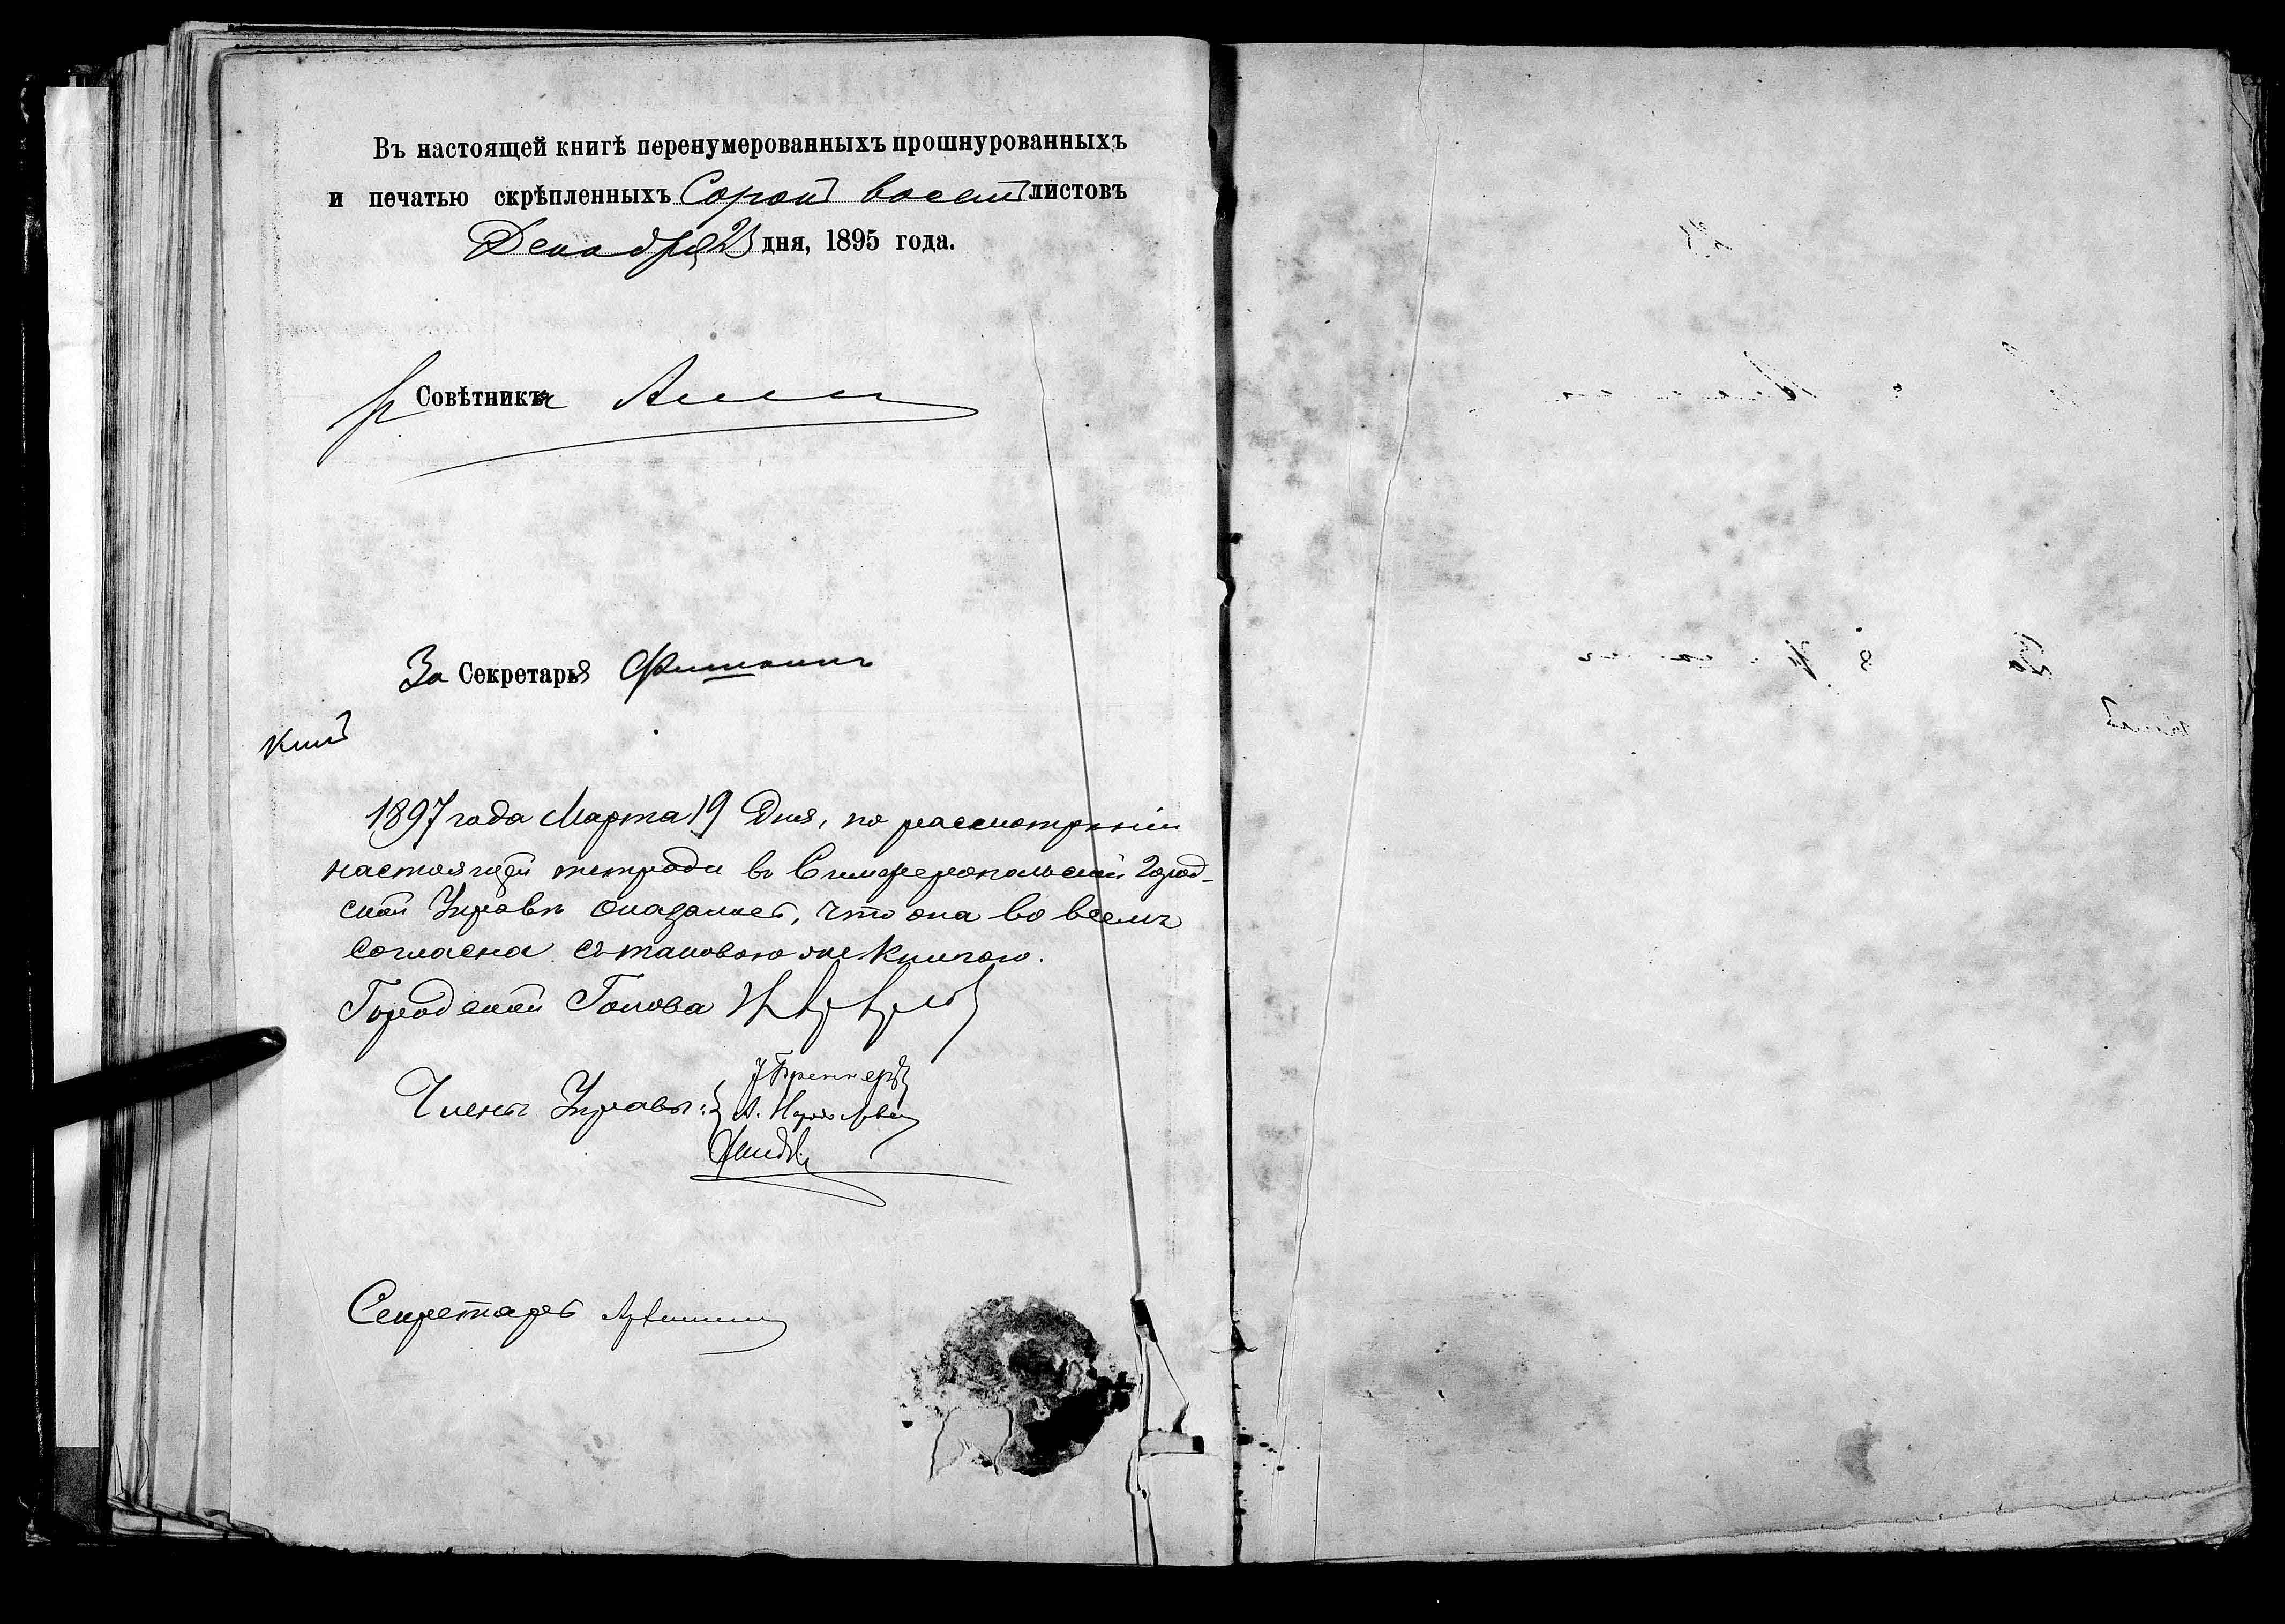 Въ настоящей книгѣ перенумерованныхъ прошнурованныхъ
и печатью скрѣпленныхъ Сорокъ восемь листовъ
Декабря 23 дня, 1895 года.
Совѣтникъ
За Секретаря
1897 года Марта 19 дня, по разсмотрѣніи
настоящей тетради въ Симферопольской Город-
ской Управѣ оказалось, что она во всемъ
согласна съ таковою же книгою.
Городской Голова
Члены Управы:
Секретарь